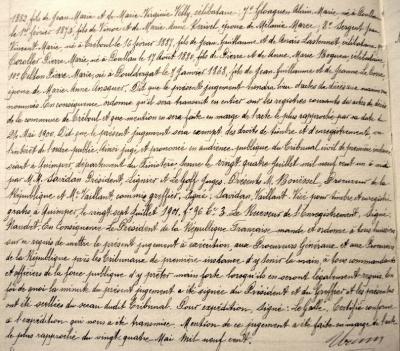 1882, fils de Jean Marie et de Marie Virginie Velly, célibataire. 7° Gloaguen Alain, Marie, né à Poullan
le 1er février 1873, fils de et de Marie Anne époux de Mélanie Marec. 8° Sergent Jean
Vincent Marie, né à Tréboul le 16 février 1887, fils de Jean Guillaume et de Anaïs Lastennet, célibataire. 9°
Coroller Pierre Marie, né à Poullan le 17 août 1880, fils de Pierre et de Anne Marie célibataire
10° Celton Pierre Marie, né à Pouldergat le 9 Janvier 1868, fils de Jean Guillaume et de Jeanne Le
époux de Marie Anne Ansquer. Dit que le présent jugement tiendra lieu d'actes de décès aux marins sus
nommés. En conséquence, ordonne qu'il sera transcrit en entier sur les registres courants des actes de décès
de la commune de Tréboul et que mention en sera faite en marge de l'acte le plus rapproché par sa date du
24 Mai 1900. Dit que le présent jugement sera exempt des droits de timbre et d'enregistrement,
de l'ordre public. Ainsi jugé et prononcé en audience publique du Tribunal civil de première instance
séant à Quimper, département du Finistère, le vingt quatre Juillet mil neuf cent un à midi
par M.M. Savidan Président, Lignier et Le Goff Juges. Présents M. Procureur de la
République et Me Vaillant, commis greffier. Signé: Savidan, Vaillant. Visé pour timbre et enregistré
gratis à Quimper, le vingt sept Juillet 1901, f° 96 c° 3. Le Receveur de l'Enregistrement, Signé:
Naudot. En conséquence Le Président de la République Française mande et ordonne à tous huissiers
sur ce requis de mettre le présent jugement à exécution, aux Procureurs Généraux et aux Procureurs
de la République près les Tribunaux de première instance d'y tenir la main, à tous commandants
et officiers de la force publique d'y prêter main forte lorsqu'ils en seront légalement requis. En
foi de quoi la minute du présent jugement a été signée du Président et du Greffier et les présentes
ont été scellées du sceau dudit Tribunal. Pour expédition, Signé: Le Galle. Certifié conforme
à l'expédition qui nous a été transmise. Mention de ce jugement a été faite en marge de l'acte
le plus rapproché du vingt quatre Mai mil neuf cent.